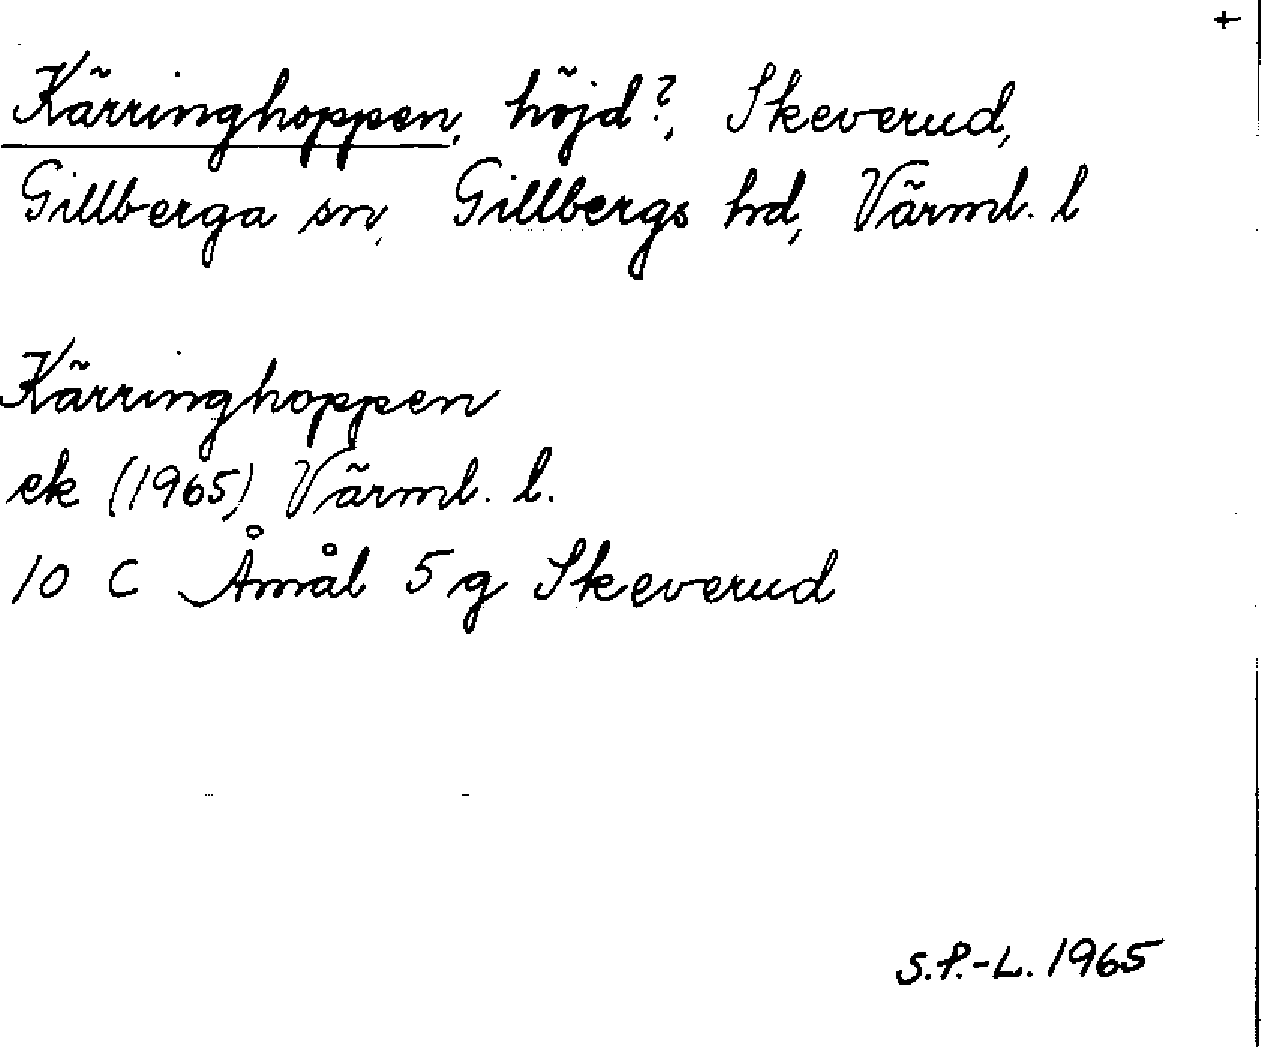 +
Kärringhoppen, höjd?, Skeverud,
Gillberga sn, Gillbergs hd, Värml. l
Kärringhoppen
ek (1965) Värml. l.
10 C Åmål 5 g Skeverud
S.P.-L. 1965